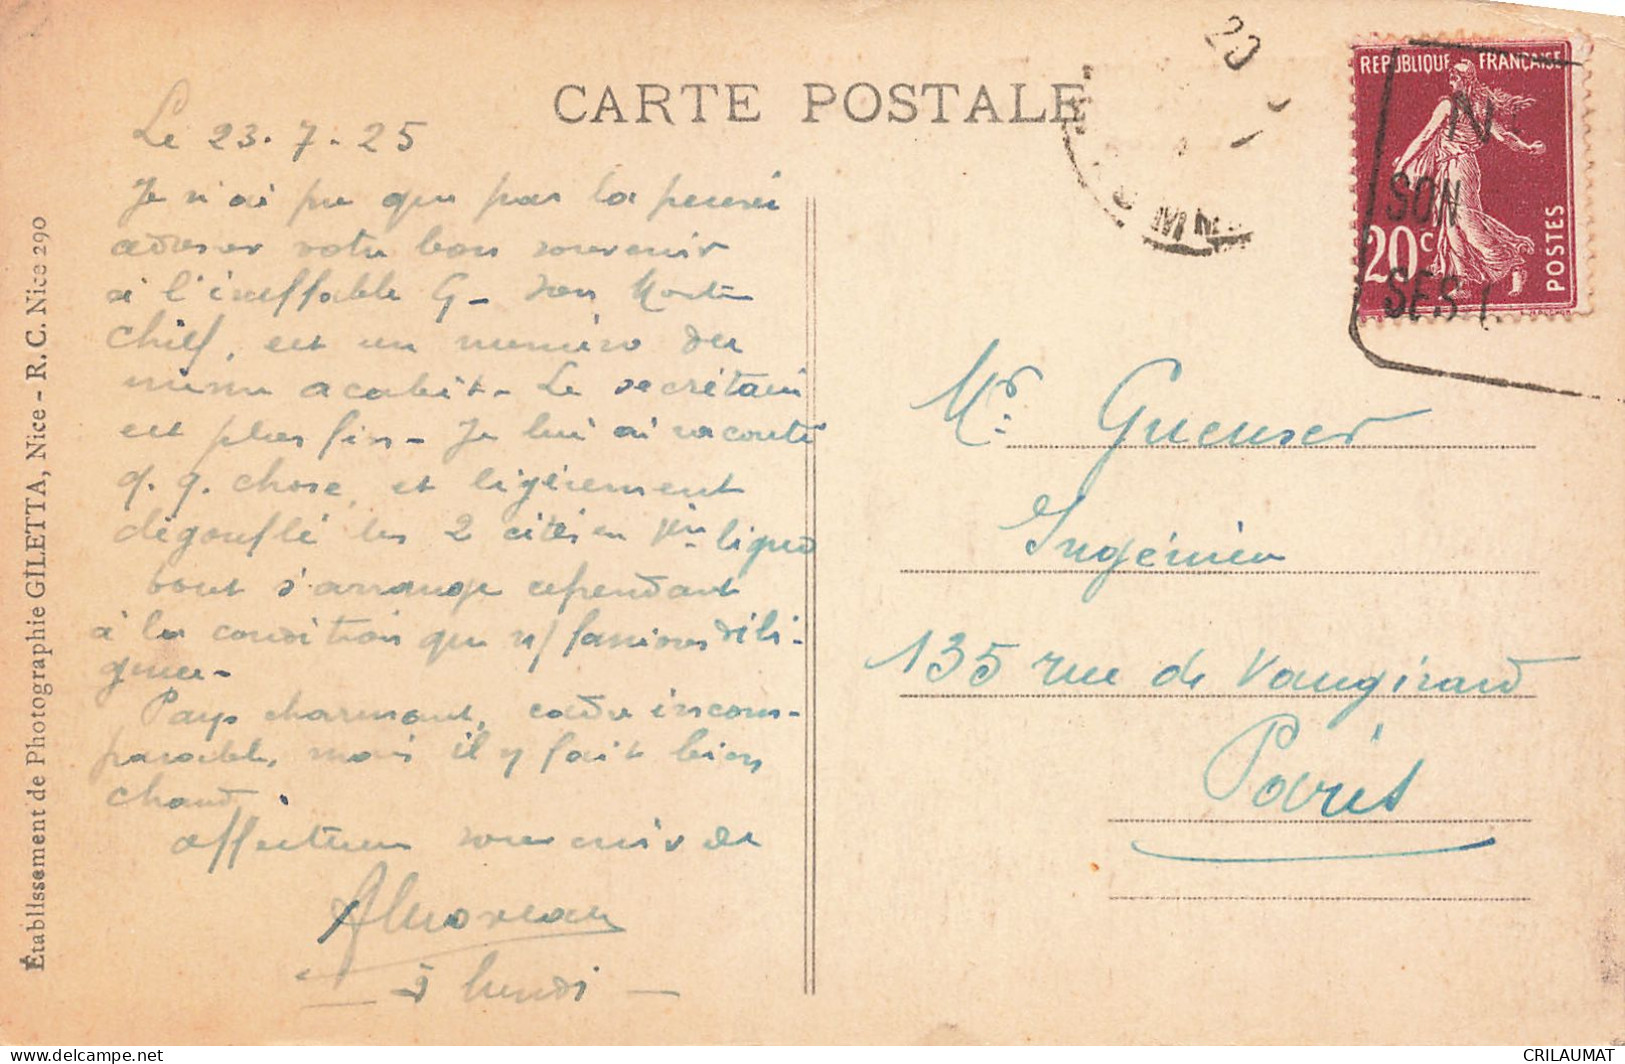 CARTE POSTALE
Le 23.7.25
Je n'ai pu que par la pensée
adresser votre bon souvenir
à l'ineffable G- Son
chief, est un numéro du
même acabit. Le secrétaire
est plus fin - Je lui ai raconté
q.q. chose, et légèrement
dégonflé les 2 cités en
tout s'arrange cependant
à la condition que n/ fassions dili-
gence.
Pays charmant, cadre incom-
parable, mais il y fait bien
chaud.
affectueux souvenir de
à lundi -
Établissement de Photographie GILETTA, Nice - R. C. Nice 290
REPUBLIQUE FRANÇAISE
20c
POSTES
N
SON
SES
Mr. Gueuser
Ingénieur
135 rue de Vaugirard
Paris
delcampe.net
CRILAUMAT